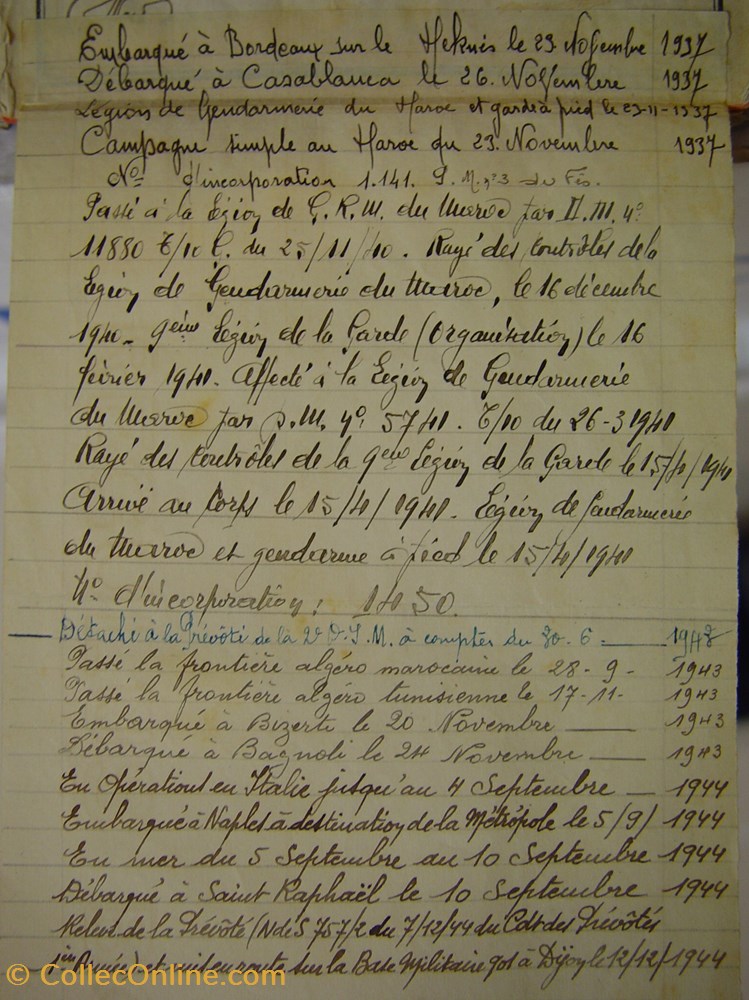 Embarqué à Bordeaux sur le Meknès le 23 Novembre 1937
Débarqué à Casablanca le 26 Novembre 1937
Légion de Gendarmerie du Maroc et garde à pied le 23-11-1937
Campagne simple au Maroc du 23 Novembre 1937
No d'incorporation 1.141. S.M. n°3 du Fès.
Passé à la Légion de G.R.M. du Maroc par D.M. n°
11880 T/10 C. du 25/11/40. Rayé des contrôles de la
Légion de Gendarmerie du Maroc, le 16 décembre
1940 - 9ème Légion de la Garde (Organisation) le 16
février 1941. Affecté à la Légion de Gendarmerie
du Maroc par D.M. n° 5741. T/10 du 26-3 1941
Rayé des contrôles de la 9ème Légion de la Garde le 15/4/1941
Arrivé au Corps le 15/4/1941. Légion de Gendarmerie
du Maroc et gendarme à pied le 15/4/1941
N° d'incorporation: 1450.
Détaché à la Prévôté de la 2e D.I.M. à compter du 30-6- 1943
Passé la frontière algéro marocaine le 28-9- 1943
Passé la frontière algéro tunisienne le 17-11- 1943
Embarqué à Bizerte le 20 Novembre 1943
Débarqué à Bagnoli le 24 Novembre 1943
En Opérations en Italie jusqu'au 4 Septembre 1944
Embarqué à Naples à destination de la Métropole le 5/9/ 1944
En mer du 5 Septembre au 10 Septembre 1944
Débarqué à Saint Raphaël le 10 Septembre 1944
Relevé de la Prévôté (N de S 757/2 du 7/12/44 du Cdt des Prévôtés
1ère Armée) et mis en route sur la Base Militaire 901 à Dijon le 12/12/1944
© CollecOnline.com